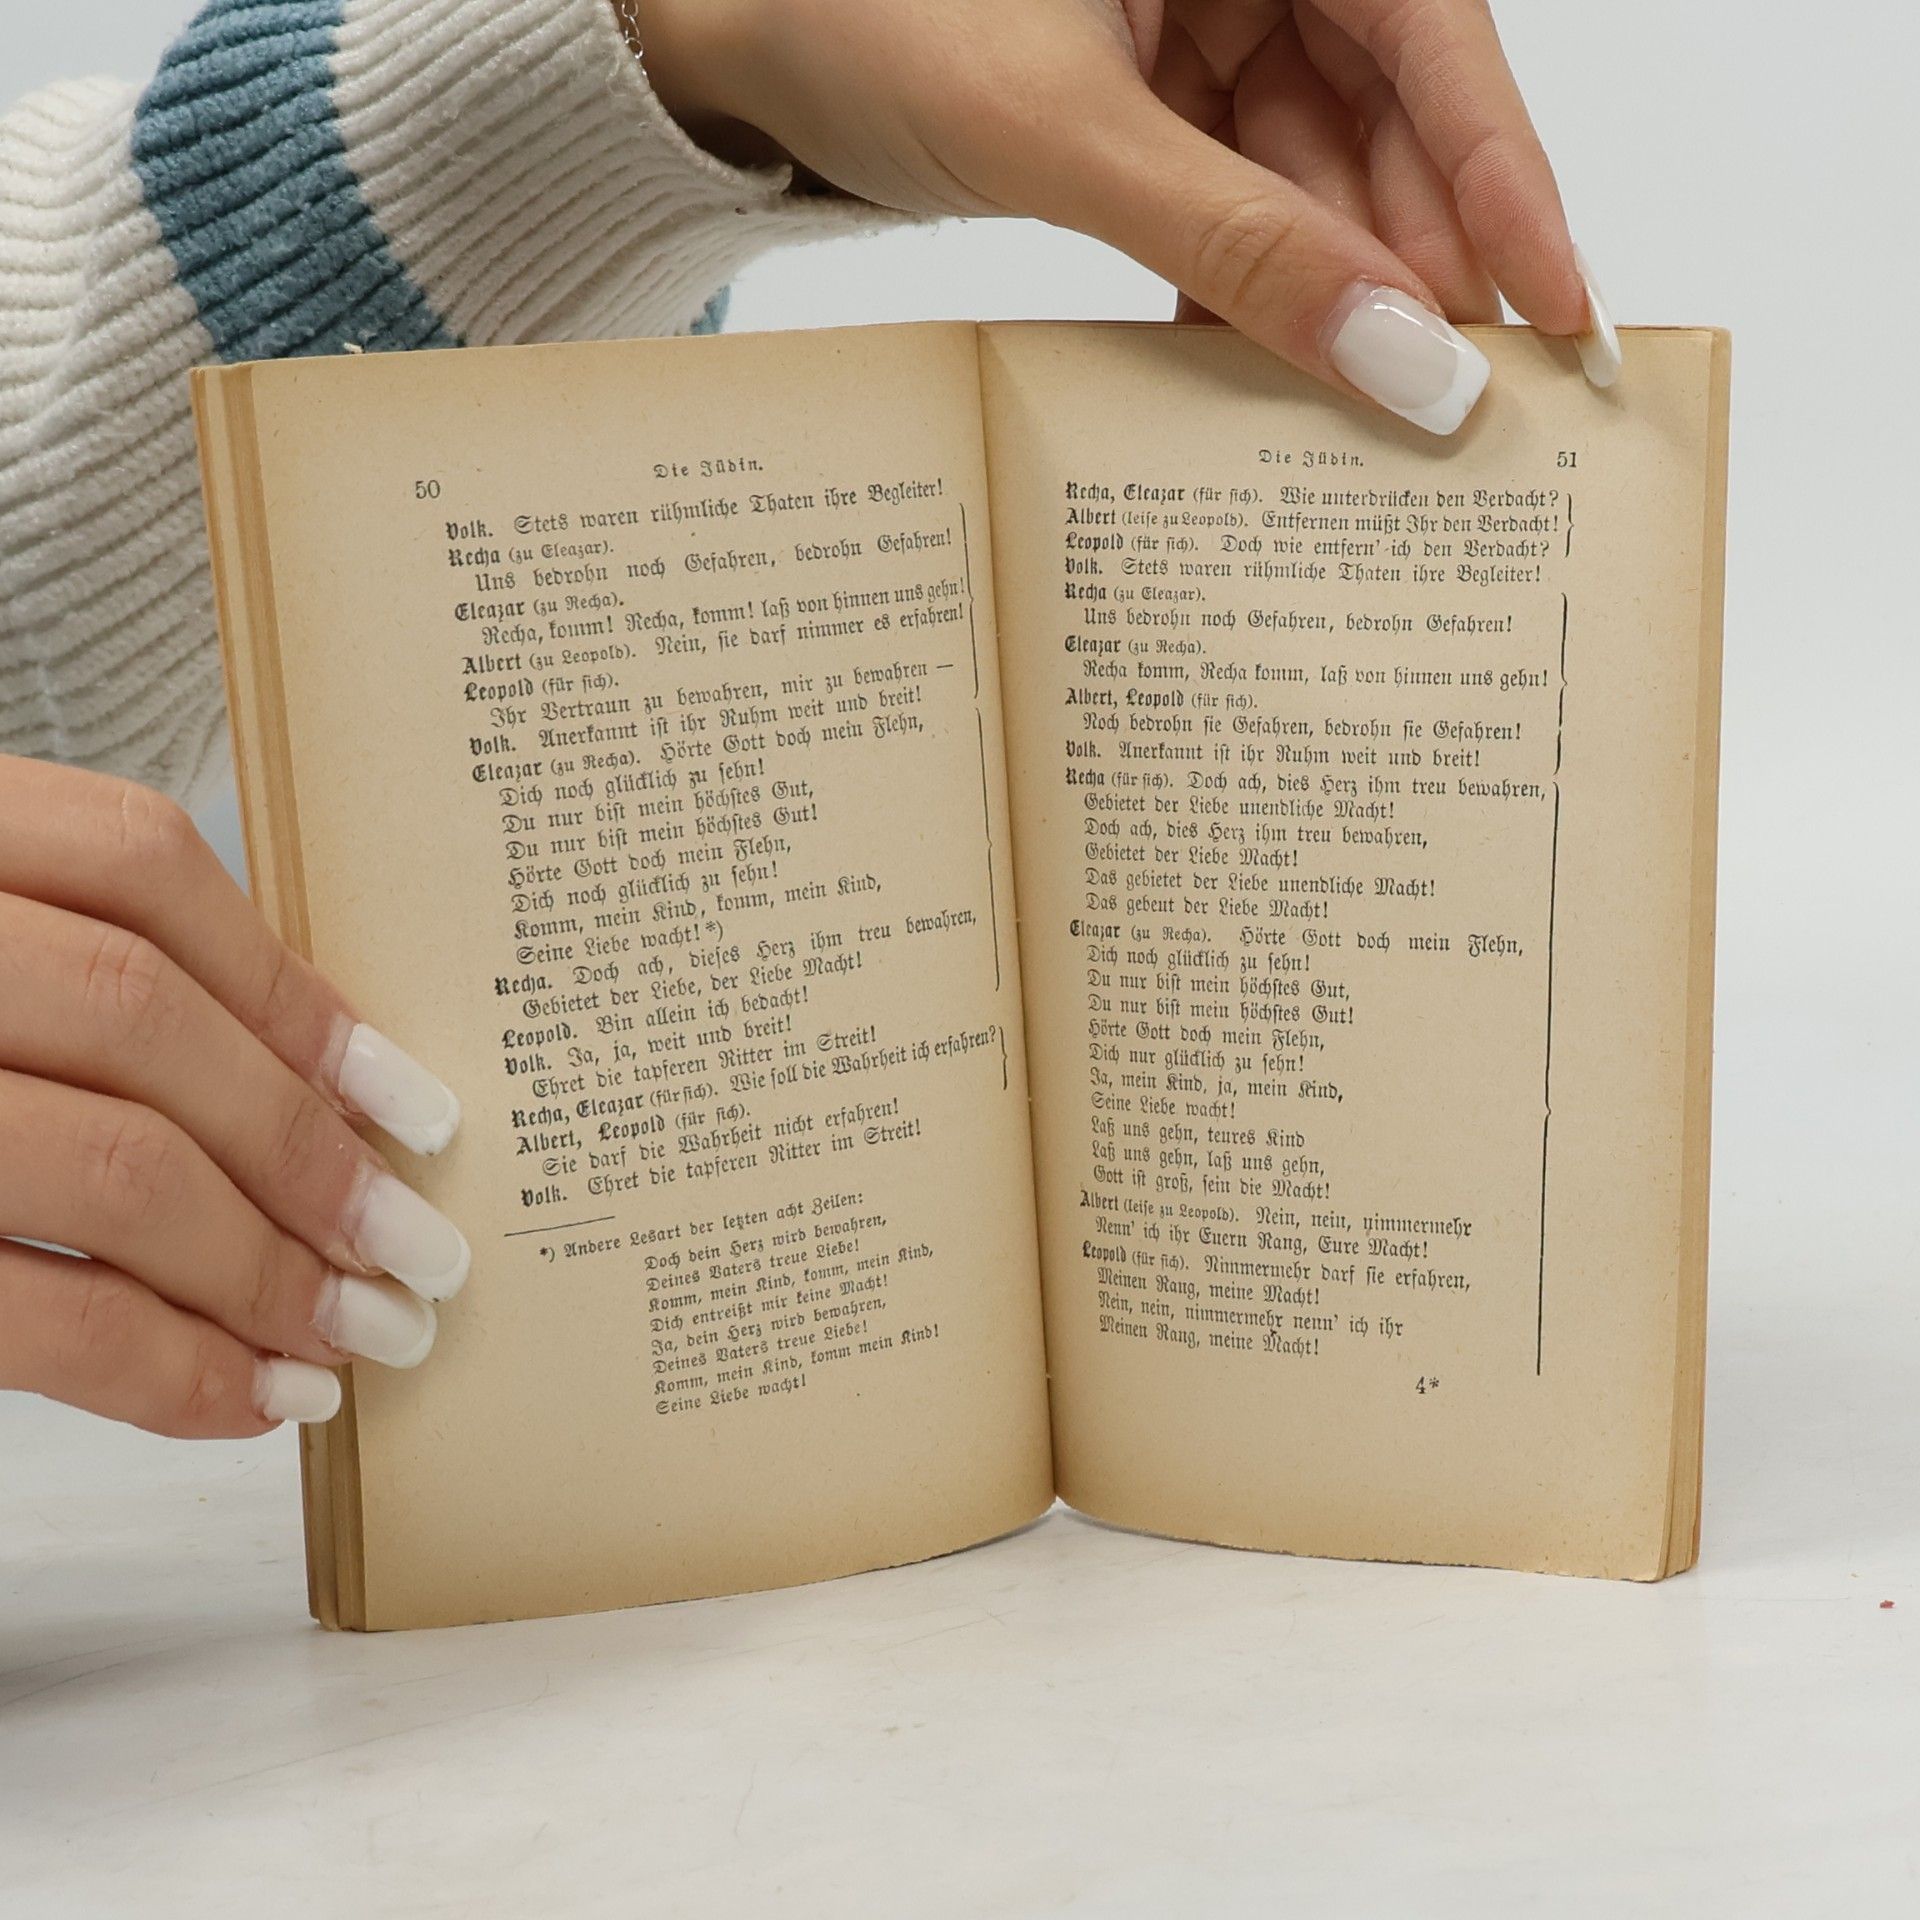 50
Die Jüdin.
Volk. Stets waren rühmliche Thaten ihre Begleiter!
Recha (zu Eleazar).
Uns bedrohn noch Gefahren, bedrohn Gefahren!
Eleazar (zu Recha).
Recha, komm! Recha, komm! laß von hinnen uns gehn!
Albert (zu Leopold). Nein, sie darf nimmer es erfahren!
Leopold (für sich).
Ihr Vertraun zu bewahren, mir zu bewahren —
Volk. Anerkannt ist ihr Ruhm weit und breit!
Eleazar (zu Recha). Hörte Gott doch mein Flehn,
Dich noch glücklich zu sehn!
Du nur bist mein höchstes Gut,
Du nur bist mein höchstes Gut!
Hörte Gott doch mein Flehn,
Dich noch glücklich zu sehn!
Komm, mein Kind, komm, mein Kind,
Seine Liebe wacht! *)
Recha. Doch ach, dieses Herz ihm treu bewahren,
Gebietet der Liebe, der Liebe Macht!
Leopold. Bin allein ich bedacht!
Volk. Ja, ja, weit und breit!
Ehret die tapferen Ritter im Streit!
Recha, Eleazar (für sich). Wie soll die Wahrheit ich erfahren?
Albert, Leopold (für sich).
Sie darf die Wahrheit nicht erfahren!
Volk. Ehret die tapferen Ritter im Streit!
*) Andere Lesart der letzten acht Zeilen:
Doch dein Herz wird bewahren,
Deines Vaters treue Liebe!
Komm, mein Kind, komm, mein Kind,
Dich entreißt mir keine Macht!
Ja, dein Herz wird bewahren,
Deines Vaters treue Liebe!
Komm, mein Kind, komm mein Kind!
Seine Liebe wacht!
Die Jüdin.
51
Recha, Eleazar (für sich). Wie unterdrücken den Verdacht?
Albert (leise zu Leopold). Entfernen müßt Ihr den Verdacht!
Leopold (für sich). Doch wie entfern' ich den Verdacht?
Volk. Stets waren rühmliche Thaten ihre Begleiter!
Recha (zu Eleazar).
Uns bedrohn noch Gefahren, bedrohn Gefahren!
Eleazar (zu Recha).
Recha komm, Recha komm, laß von hinnen uns gehn!
Albert, Leopold (für sich).
Noch bedrohn sie Gefahren, bedrohn sie Gefahren!
Volk. Anerkannt ist ihr Ruhm weit und breit!
Recha (für sich). Doch ach, dies Herz ihm treu bewahren,
Gebietet der Liebe unendliche Macht!
Doch ach, dies Herz ihm treu bewahren,
Gebietet der Liebe Macht!
Das gebietet der Liebe unendliche Macht!
Das gebeut der Liebe Macht!
Eleazar (zu Recha). Hörte Gott doch mein Flehn,
Dich noch glücklich zu sehn!
Du nur bist mein höchstes Gut,
Du nur bist mein höchstes Gut!
Hörte Gott doch mein Flehn,
Dich nur glücklich zu sehn!
Ja, mein Kind, ja, mein Kind,
Seine Liebe wacht!
Laß uns gehn, teures Kind
Laß uns gehn, laß uns gehn,
Gott ist groß, sein die Macht!
Albert (leise zu Leopold). Nein, nein, nimmermehr
Nenn' ich ihr Euern Rang, Eure Macht!
Leopold (für sich). Nimmermehr darf sie erfahren,
Meinen Rang, meine Macht!
Nein, nein, nimmermehr nenn' ich ihr
Meinen Rang, meine Macht!
4*